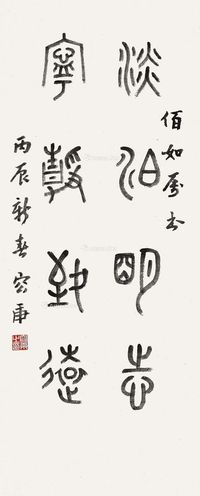 佰如屬書
淡泊明志
寧靜致遠
丙辰新春容庚